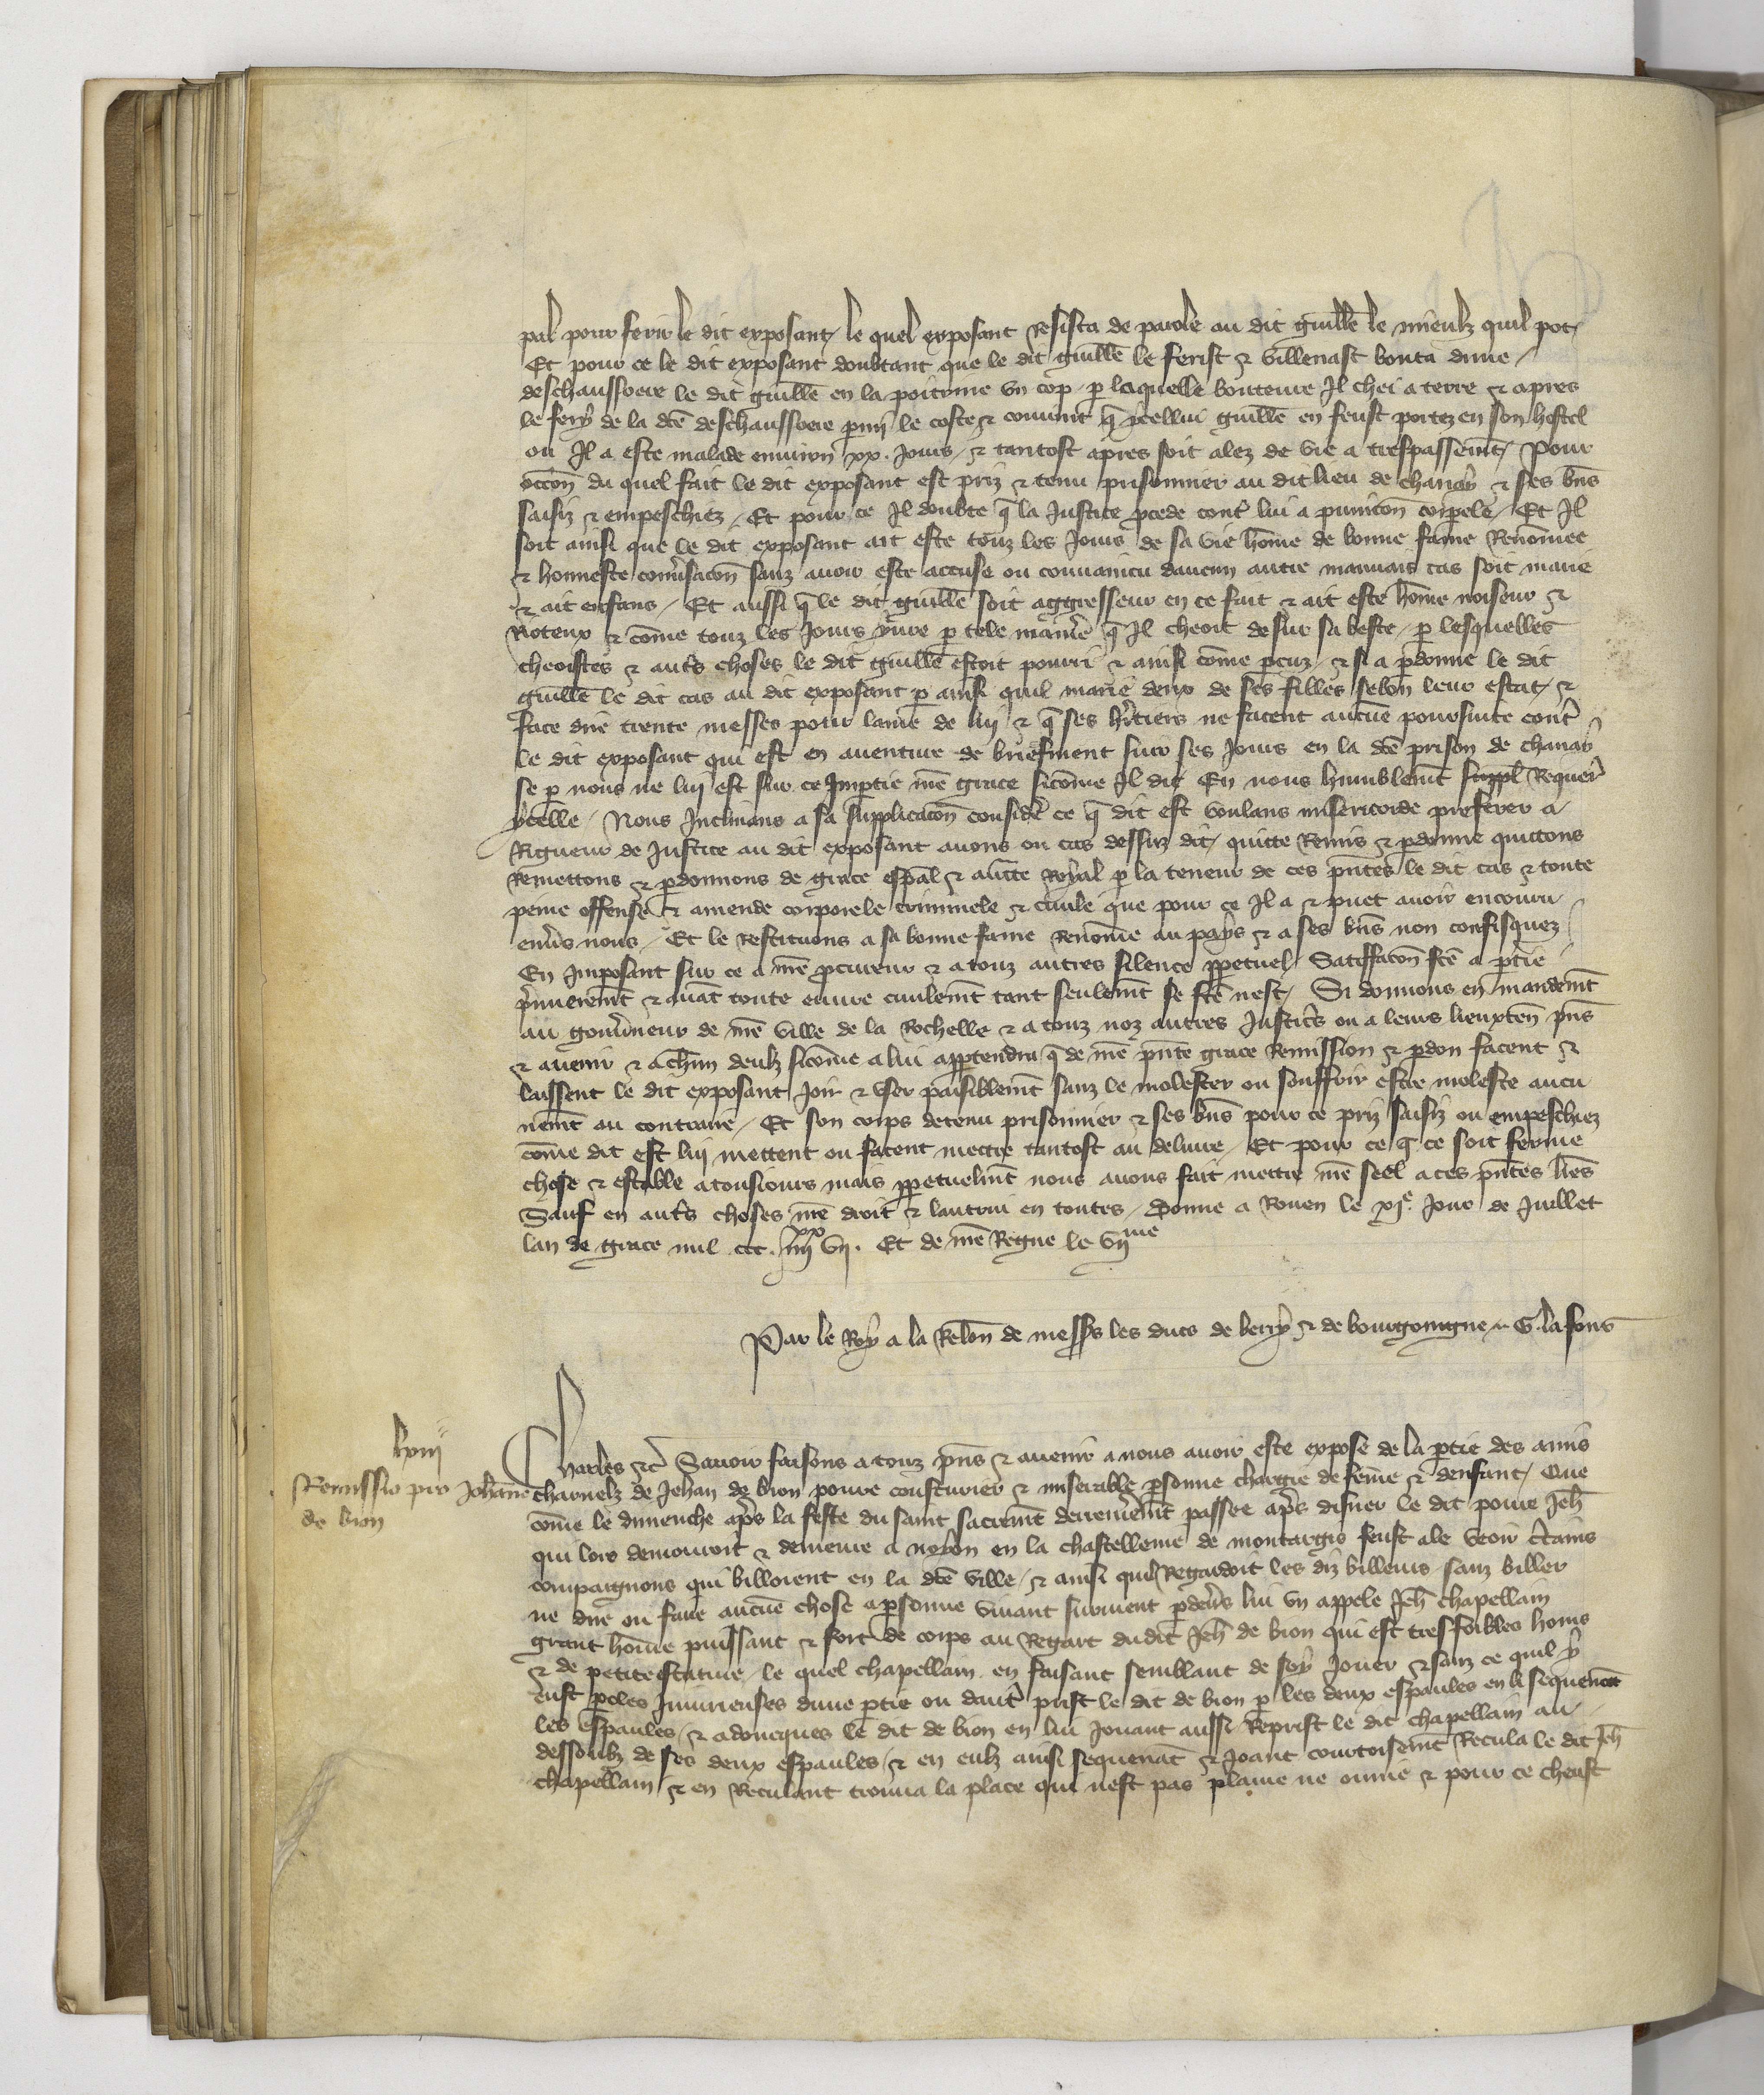 pal pour ferir le dit exposant / le quel exposant resista de parole au dit guille le mieulz quil pot /
Et pour ce le dit exposant doubtant que le dit guille le ferist & villenast bouta dune /
deschaussoere le dit guille en la poitrine un cop / p laquelle bouteure Il chei a terre & apres
le fery de la dce deschaussoere parmy le coste & convint q ycellui guille en feust portez en son hostel
ou Il a este malade environ xx. jours / & tantost apres soit alez de vie a trespassemt / Pour
occon du quel fait le dit exposant est priz & tenu prisonnier au dit lieu de & ses bns
saisiz & empeschiez / Et pour ce Il doubte q la justice pcede cont lui a punicon corpele / Et Il
soit ainsi que le dit exposant ait este touz les jours de sa vie home de bonne fame Renomee
& honneste convsacon sanz avoir este accuse ou convaincu daucun autre mauvais cas soit marie
& ait enfans / Et aussi q le dit guille soit aggresseur en ce fait & ait este home noiseur &
Rioteux & come touz les jours yvre p tele maniere q Il cheoit de sur sa beste / p lesquelles
cheoistes & auts choses le dit guille estoit pourri & ainsi come / & si a pdonne le dit
guille le dit cas au dit exposant p ainsi quil marie deux de ses filles selon leur estat / &
face dire trente messes pour lame de luy & q ses hritiers ne facent aucune poursuite cont
le dit exposant qui est en aventure de briefment finir ses jours en la dce prison de
se p nous ne luy est sur ce Impartie nre grace sicome Il dit En nous humblemt suppl Requer
ycelle / Nous Inclinans a sa supplicacon consider ce q dit est voulans misericorde preferer a
Rigueur de justice au dit exposant avons ou cas dessuz dit / quitte Remis & pdonne quittons
Remettons & pdonnons de grace espal & aucte Royal p la teneur de ces pntes le dit cas & toute
peine offense & amende corporele criminele & civile que pour ce Il a & puet avoir encouru
envs nous / Et le Restituons a sa bonne fame Renomee au pays & a ses bns non confisquez /
En Imposant sur ce a nre pcureur & a touz autres silence ppetuel / Satiffacon fce a ptie
pmieremt & avat toute euvre civilemt tant seulemt se fce nest / Si donnons en mandemt
au gouvneur de nre ville de la Rochelle & a touz noz autres justics ou a leurs lieuxten pns
& avenir & a chun deulz sicome a lui apptendra q de nre pnte grace Remission & pdon facent &
laissent le dit exposant joir & user paisiblemt sanz le molester ou souffrir estre moleste aucu
nemt au contraire / Et son corps detenu prisonnier & ses bns pour ce priz saisiz ou empeschiez
come dit est luy mettent ou facent mettre tantost au delivre / Et pour ce q ce soit ferme
chose & estable a tousiours mais ppetuelmt nous avons fait mettre nre seel a ces pntes lres
Sauf en auts choses nre droit & lautrui en toutes / Donne a Rouen le xj.e jour de juillet
lan de grace mil ccc. iiij xx vij. Et de nre Regne le vij me
Par le Roy a la Relon de messrs les ducs de berry & de bourgoingne G. la fons
lxiij
Remissio pro Johanne
de bion
Charles &c Savoir faisons a touz pns & avenir a nous avoir este expose de la ptie des amis
charnelz de Jehan de bion povre cousturier & miserable psonne chargie de feme & denfant / Que
come le dimenche aps la feste du saint sacremt derreniremt passee aps disner le dit povre Jeh
qui lors demouroit & demeure a en la chastellenie de montargis feust ale veoir ctains
compaignons qui billoient en la dce ville / & ainsi quil Regardoit les diz billeurs sanz biller
ne dire ou faire aucune chose a psonne vivant survient pdevs lui un appele Jeh chapellain
grant home puissant & fort de corps au Regart dudit Jeh de bion qui est tresfoibles homs
& de petite estature / le quel chapellain en faisant semblant de soy jouer & sanz ce quil y
eust poles Iniurieuses dune ptie ou daut prist le dit de bion p les deux espaules en li sequeuat
les espaules / & adoncques le dit de bion en lui jouant aussi Reprist le dit chapellain au
dessoubz de ses deux espaules / & en eulz ainsi sequeuat & joant courtoisemt Recula le dit Jeh
chapellain & en Reculant trouva la place qui nest pas plaine ne onnie & pour ce cheust